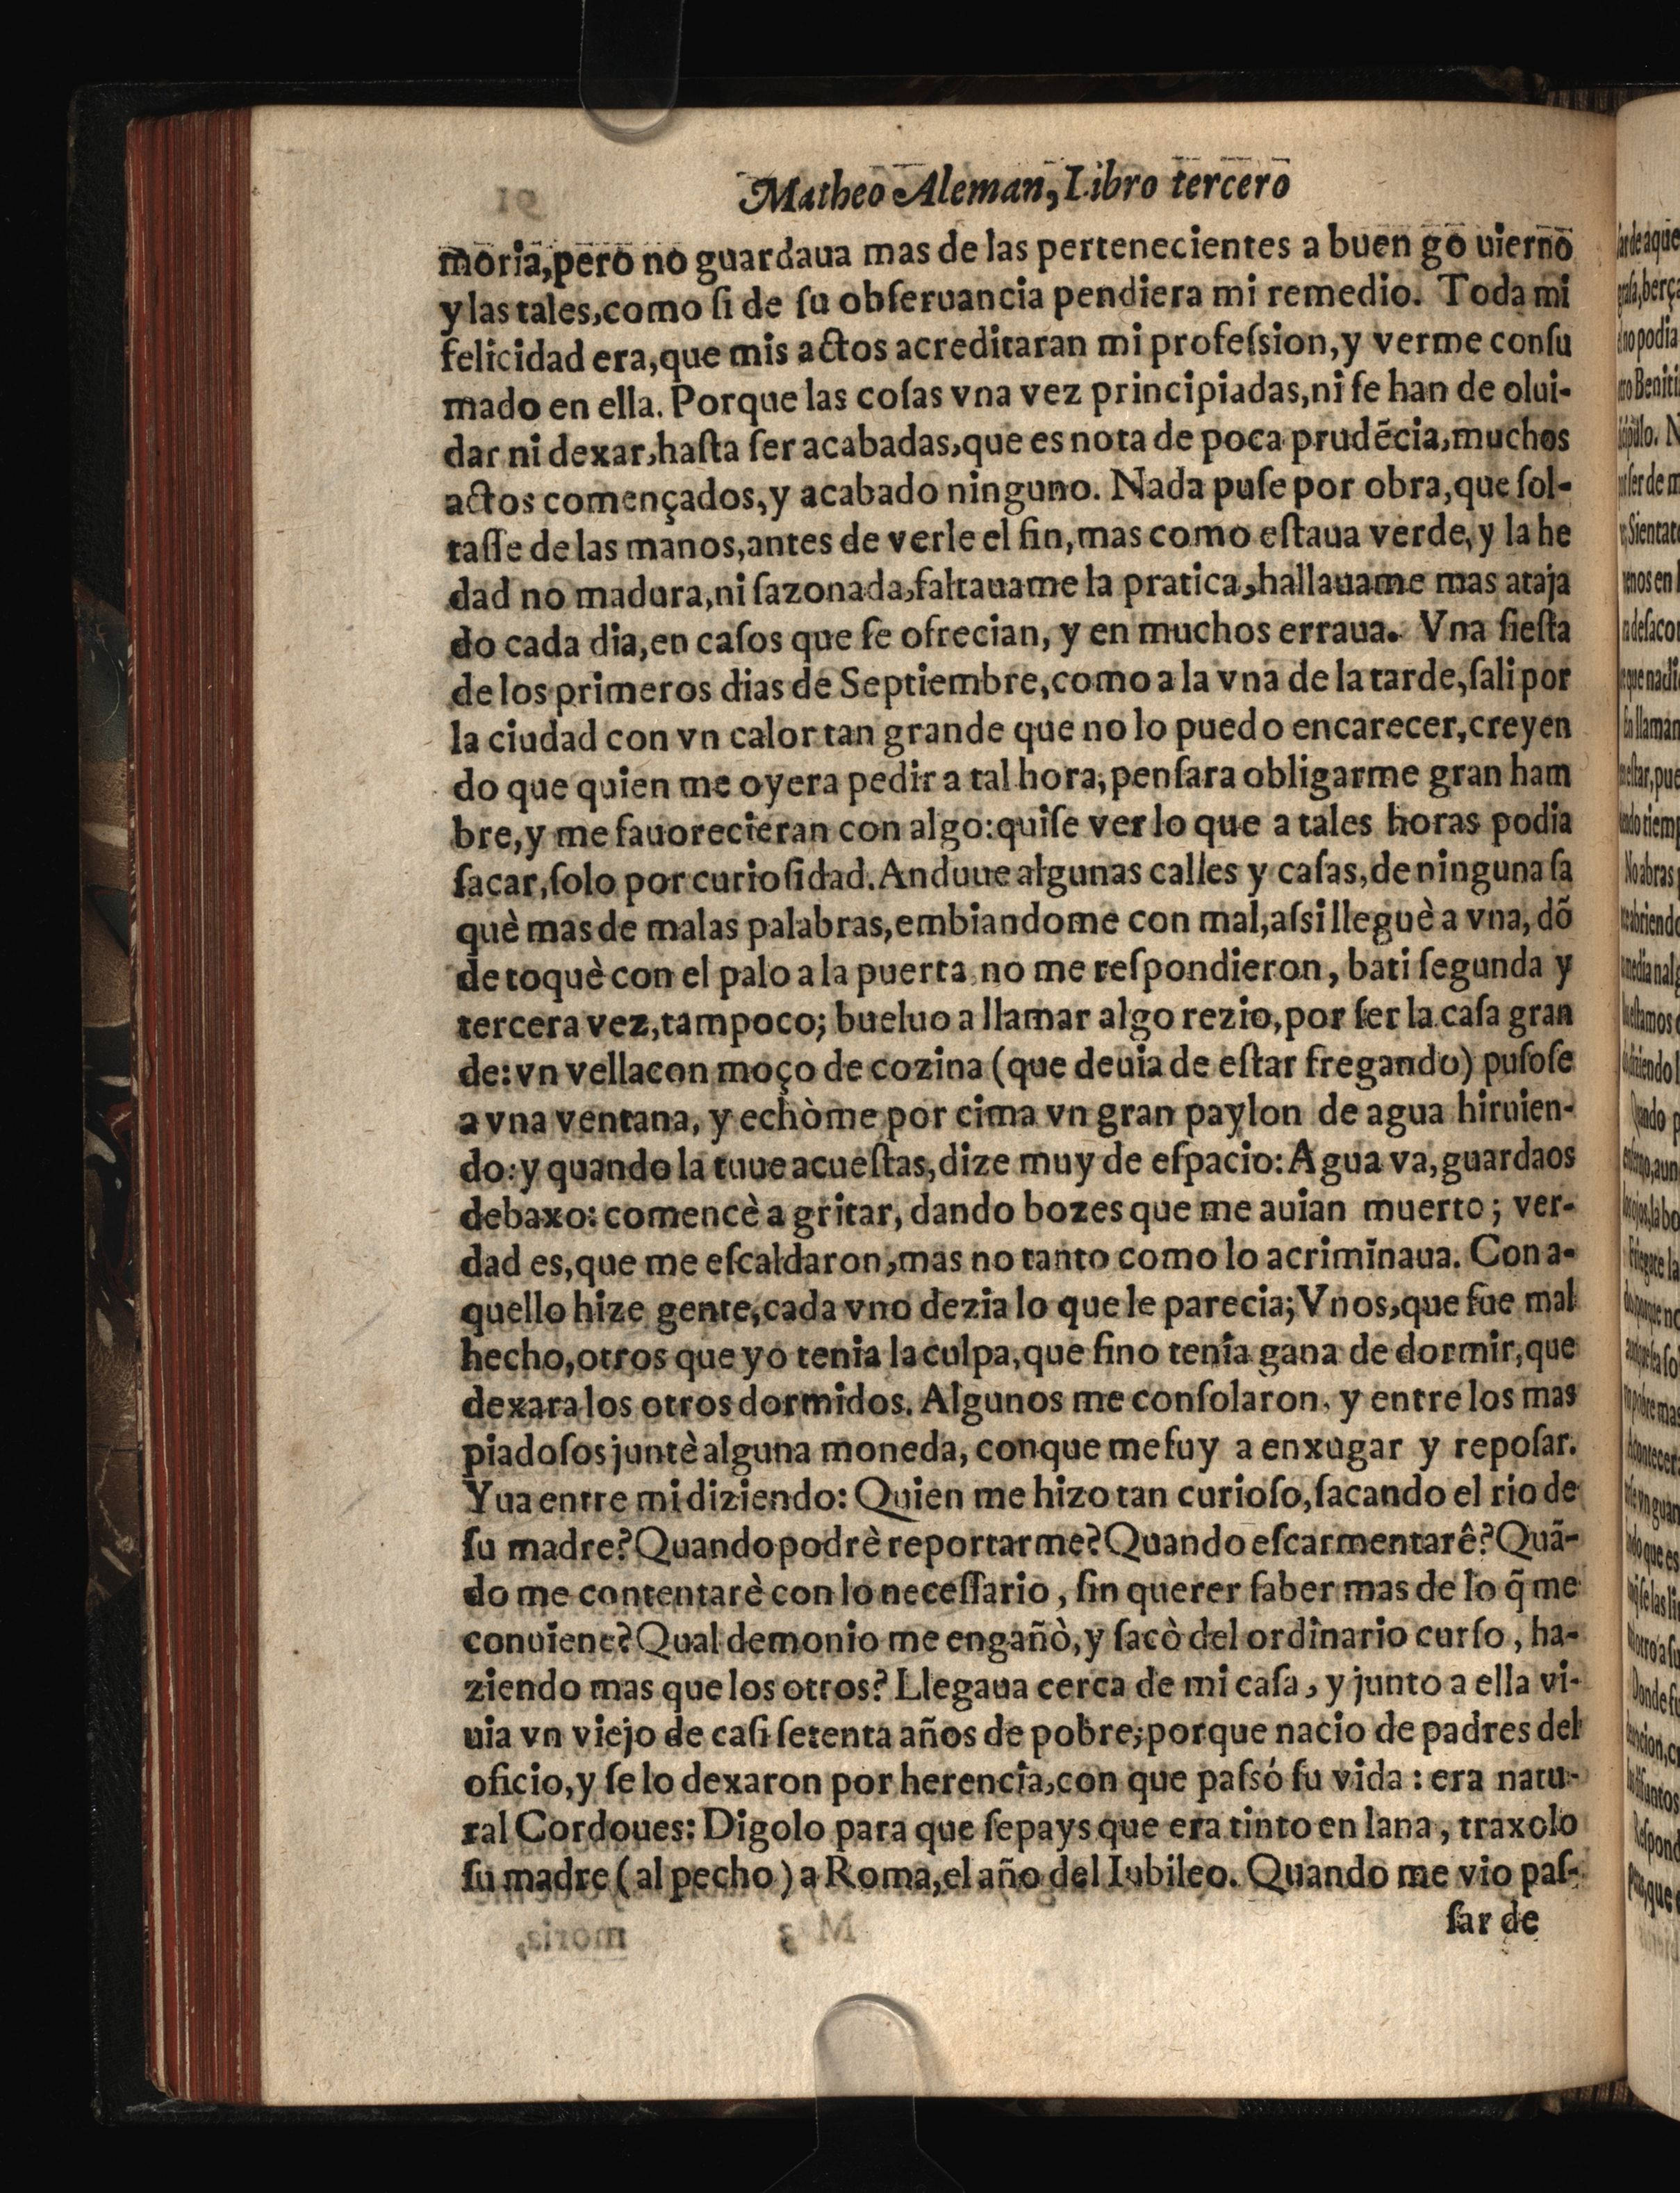 Matheo Aleman, Libro tercero
moria, pero no guardaua mas de las pertenecientes a buen go uierno
y las tales, como ſi de ſu obſeruancia pendiera mi remedio. Toda mi
felicidad era, que mis actos acreditaran mi profeſsion, y verme conſu
mado en ella. Porque las coſas vna vez principiadas, ni ſe han de olui-
dar ni dexar, haſta ſer acabadas, que es nota de poca prudẽcia, muchos
actos començados, y acabado ninguno. Nada puſe por obra, que ſol-
taſſe de las manos, antes de verle el fin, mas como eſtaua verde, y la he
dad no madura, ni ſazonada, faltauame la pratica, hallauame mas ataja
do cada dia, en caſos que ſe ofrecian, y en muchos erraua. Vna ſieſta
de los primeros dias de Septiembre, como a la vna de la tarde, ſali por
la ciudad con vn calor tan grande que no lo puedo encarecer, creyen
do que quien me oyera pedir a tal hora, penſara obligarme gran ham
bre, y me fauorecieran con algo: quiſe ver lo que a tales horas podia
ſacar, ſolo por curioſidad. Anduue algunas calles y caſas, de ninguna ſa
què mas de malas palabras, embiandome con mal, aſsi lleguè a vna, dõ
de toquè con el palo a la puerta no me reſpondieron, bati ſegunda y
tercera vez, tampoco; bueluo a llamar algo rezio, por ſer la caſa gran
de: vn vellacon moço de cozina (que deuia de eſtar fregando) puſoſe
a vna ventana, y echòme por cima vn gran paylon de agua hiruien-
do: y quando la tuue acueſtas, dize muy de eſpacio: Agua va, guardaos
debaxo: comencè a gritar, dando bozes que me auian muerto; ver-
dad es, que me eſcaldaron, mas no tanto como lo acriminaua. Con a-
quello hize gente, cada vno dezia lo que le parecia; Vnos, que fue mal
hecho, otros que yo tenia la culpa, que ſino tenia gana de dormir, que
dexara los otros dormidos. Algunos me conſolaron, y entre los mas
piadoſos juntè alguna moneda, conque me fuy a enxugar y repoſar.
Yua entre mi diziendo: Quien me hizo tan curioſo, ſacando el rio de
ſu madre? Quando podrè reportarme? Quando eſcarmentarê? Quã-
do me contentarè con lo neceſſario, ſin querer ſaber mas de lo q̃ me
conuiene? Qual demonio me engañò, y ſacò del ordinario curſo, ha-
ziendo mas que los otros? Llegaua cerca de mi caſa, y junto a ella vi-
uia vn viejo de caſi ſetenta años de pobre; porque nacio de padres del
oficio, y ſe lo dexaron por herencia, con que paſsó ſu vida: era natu-
ral Cordoues: Digolo para que ſepays que era tinto en lana, traxolo
ſu madre (al pecho) a Roma, el año del Iubileo. Quando me vio paſ-
ſar de